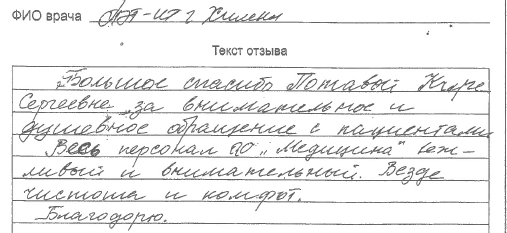 ФИО врача ПЭТ-КТ г Химки
Текст отзыва
Большое спасибо
Сергеевне за внимательное и
душевное обращение с пациентами
Весь персонал АО „Медицина" веж-
ливый и внимательный. Везде
чистота и комфот.
Благодорю.